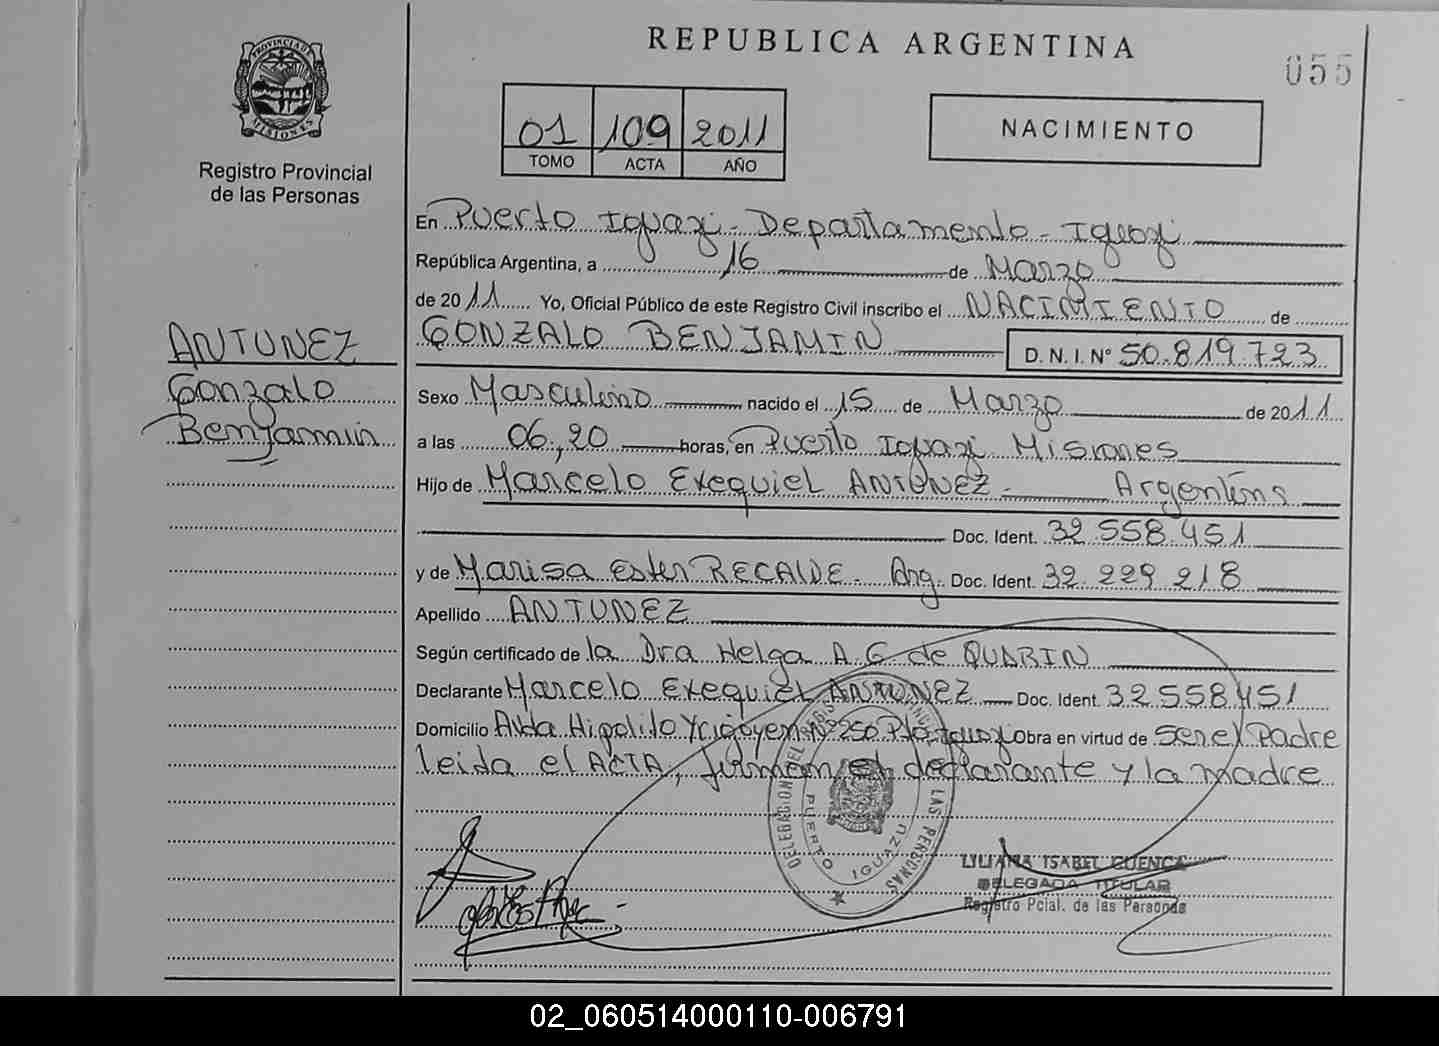 REPUBLICA ARGENTINA
055
PROVINCIA DE
MISIONES
Registro Provincial
de las Personas
01 109 2011
TOMO ACTA AÑO
NACIMIENTO
En Puerto Iguazú - Departamento - Iguazú
República Argentina, a 16 de Marzo
de 2011 Yo, Oficial Público de este Registro Civil inscribo el NACIMIENTO de
GONZALO BENJAMIN D. N. I. Nº 50.819.723
ANTUNEZ
Gonzalo
Benjamin
Sexo Masculino nacido el 15 de Marzo de 2011
a las 06,20 horas, en Puerto Iguazú Misiones
Hijo de Marcelo Exequiel ANTUNEZ - Argentino
Doc. Ident. 32.558.451
y de Marisa Ester RECALDE - Arg. Doc. Ident. 32.229.218
Apellido ANTUNEZ
Según certificado de la Dra Helga A. G. de QUARIN
Declarante Marcelo Exequiel ANTUNEZ Doc. Ident. 32.558.451
Domicilio Avda Hipolito Yrigoyen Nº 250 Pto. Iguazú Obra en virtud de Ser el Padre
leida el ACTA, firman el declarante y la madre
DELEGACION DEL LAS PERSONAS
PUERTO IGUAZU
LILIANA ISABEL CUENCA
DELEGADA TITULAR
Registro Pcial. de las Personas
02_060514000110-006791